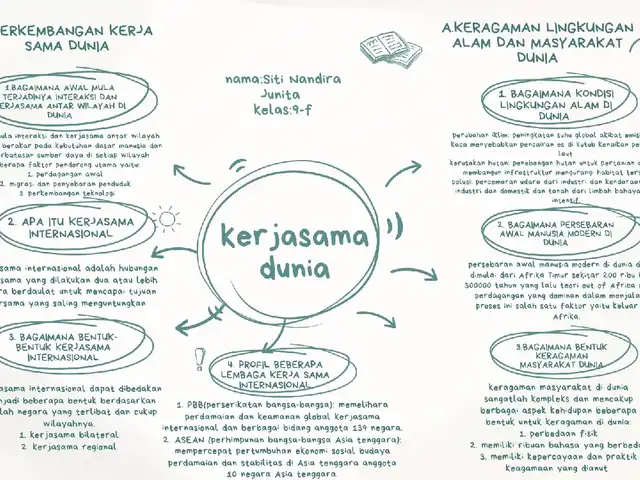 ERKEMBANGAN KERJA
SAMA DUNIA
1.BAGAIMANA AWAL MULA
TERJADINYA INTERAKSI DAN
KERJASAMA ANTAR WILAYAH DI
DUNIA
mula interaksi dan kerjasama antar wilayah
berakar pada kebutuhan dasar manusia dan
terbatasar sumber daya di setiap wilayah
berapa faktor pendorong utama yaitu:
1. perdagangan awal
2. migrasi dan penyebaran penduduk
3 perkembangan teknologi
2. APA ITU KERJASAMA
INTERNASIONAL
asama internasional adalah hubungan
sama yang dilakukan dua atau lebih
ara berdaulat untuk mencapai tujuan
ersama yang saling menguntungkan
3. BAGAIMANA BENTUK-
BENTUK KERJASAMA
INERNASIONAL
asama internasional dapat dibedakan
njadi beberapa bentuk berdasarkan
lah negara yang terlibat dan cukup
wilayahnya.
1. kerjasama bilateral
2. kerjasama regional
nama:Siti Nandira
Junita
kelas:9-f
kerjasama
dunia
4. PROFIL BEBERAPA
LEMBAGA KERJA SAMA
INTERNASIONAL
1. PBB(perserikatan bangsa-bangsa): memelihara
perdamaian dan keamanan global kerjasama
internasional dan berbagai bidang anggota 139 negara.
2. ASEAN (perhimpunan bangsa-bangsa Asia tenggara):
mempercepat pertumbuhan ekonomi sosial budaya
perdamaian dan stabilitas di Asia tenggara anggota
10 negara Asia tenggara
A.KERAGAMAN LINGKUNGAN
ALAM DAN MASYARAKAT
DUNIA
1. BAGAIMANA KONDISI
LINGKUNGAN ALAM DI
DUNIA
perubahan iklim: peningkatan suhu global akibat emisi
kaca menyebabkan pencairan es di kutub kenaikan pe
laut
kerusakan hutan: penebangan hutan untuk pertanian d
membangun infrastruktur mengurangi habitat ters
polusi: pencemaran udara dari industri dan kendaraan
industri dan domestik dan tanah dari limbah bahaya
intensif
2. BAGAIMANA PERSEBARAN
AWAL MANUSIA MODERN DI
DUNIA
persebaran awal manusia modern di dunia d
dimulai dari Afrika Timur sekitar 200 ribu
300000 tahun yang lalu teori out of Africa
perdagangan yang dominan dalam menjalas
proses ini salah satu faktor yaitu keluar
Afrika.
3.BAGAIMANA BENTUK
KERAGAMAN
MASYARAKAT DUNIA
keragaman masyarakat di dunia
sangatlah kompleks dan mencakup
berbagai aspek kehidupan beberapa
bentuk untuk keragaman di dunia:
1. perbedaan fisik
2. memiliki ribuan bahasa yang berbed
3. memiliki kepercayaan dan praktik
keagamaan yang dianut